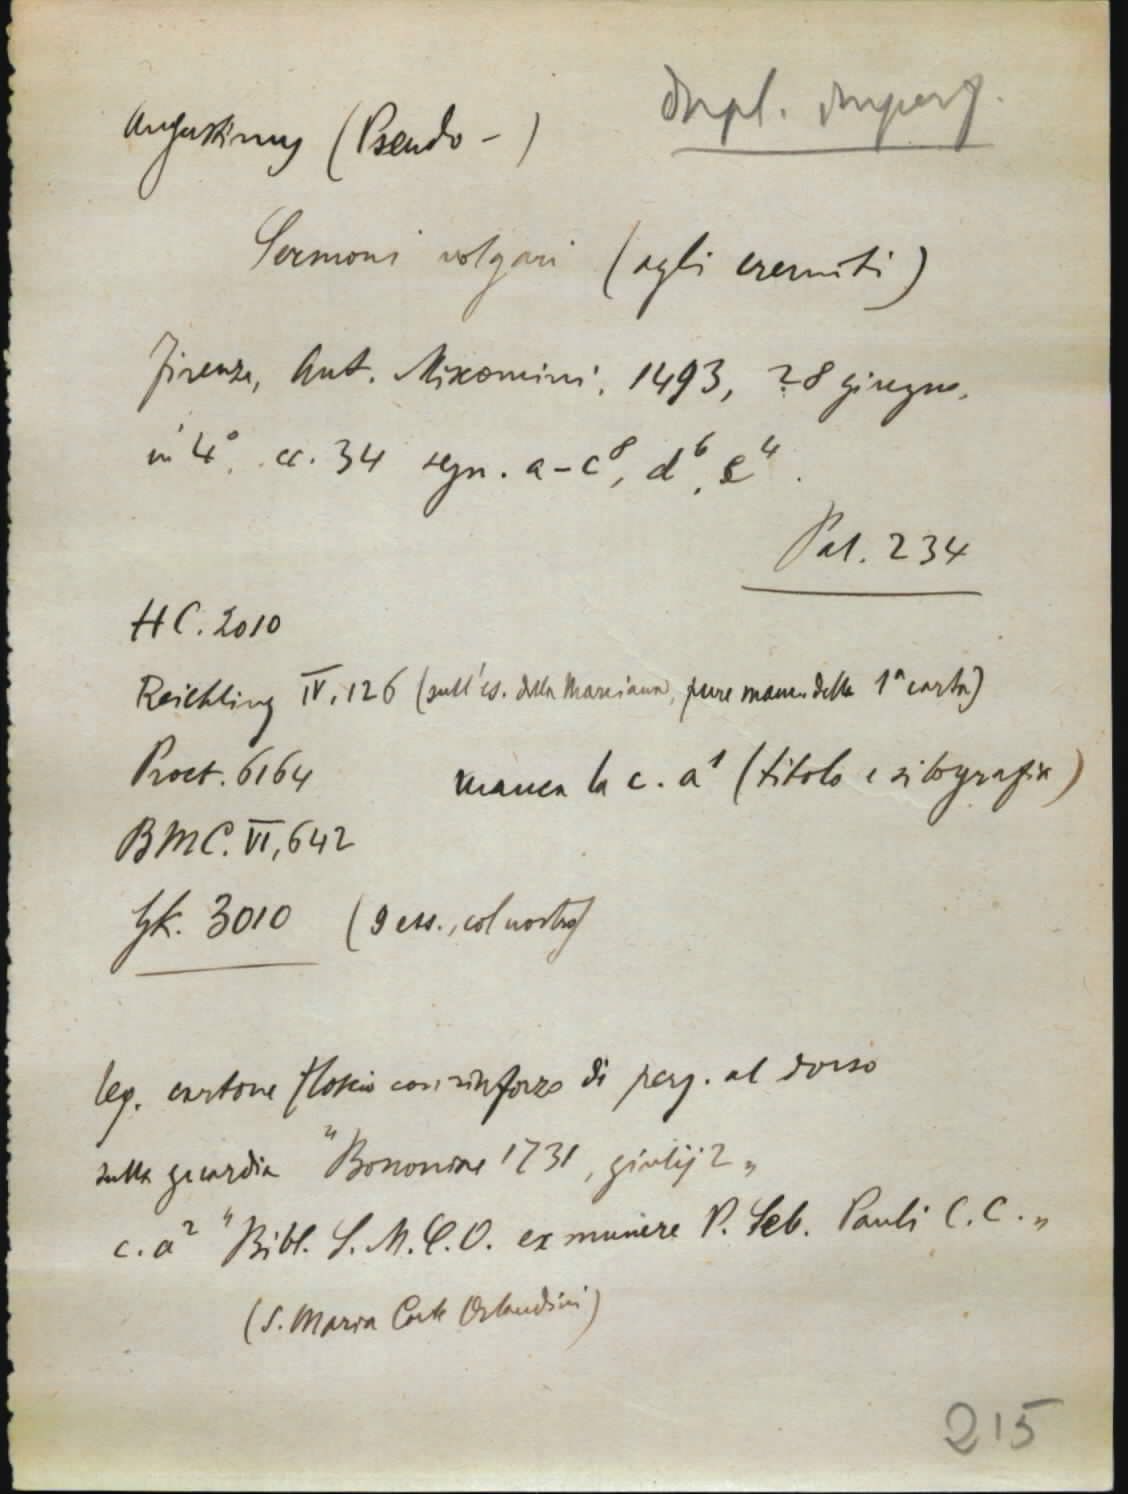 Dupl. imperf.
Augustinus (Pseudo-)
Sermoni volgari (agli eremiti)
Firenze, Ant. Miscomini, 1493, 28 giugno,
in 4°. cc. 34 segn. a-c⁸, d⁶, e⁴.
Pal. 234
HC. 2010
Reichling IV, 126 (sull'es. della Marciana, pure manc. della 1ª carta)
Proct. 6164 manca la c. a¹ (titolo e silografia)
BMC. VI, 642
Gk. 3010 (9 ess., col nostro)
leg. cartone floscio con rinforzo di perg. al dorso
sulla guardia "Bononiae 1731, giulij 2„
c. a² "Bibl. S. M. C. O. ex munere P. Seb. Pauli C. C.„
(S. Maria Corte Orlandini)
215